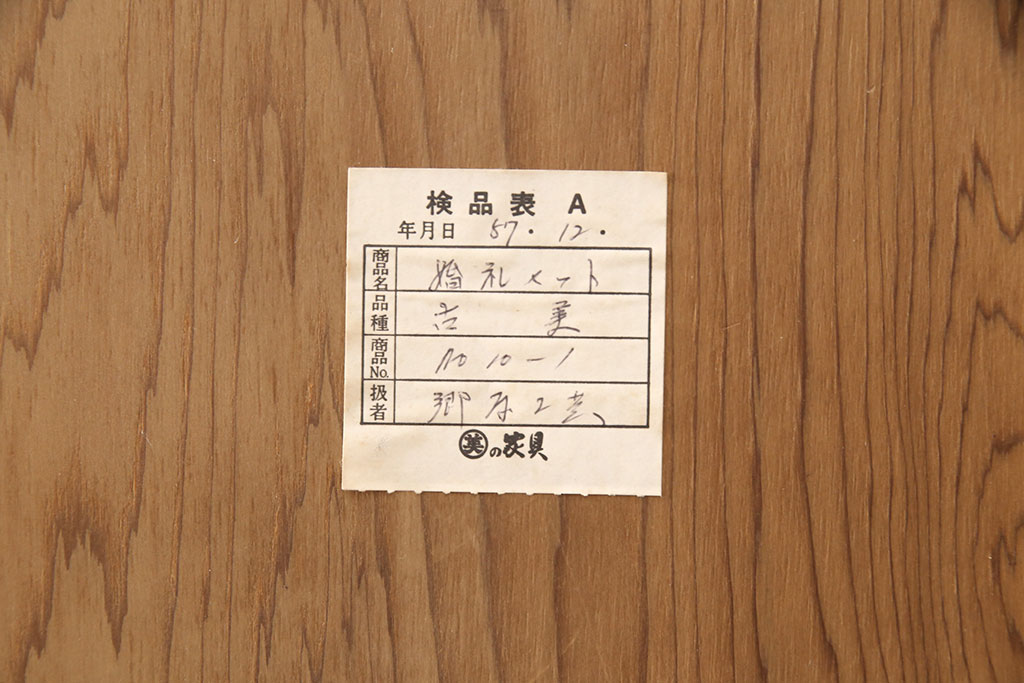 検品表 A
年月日 57・12・
商品名 婚礼セット
品種 吉美
商品No. No 10-1
扱者 郷原工芸
美の家具